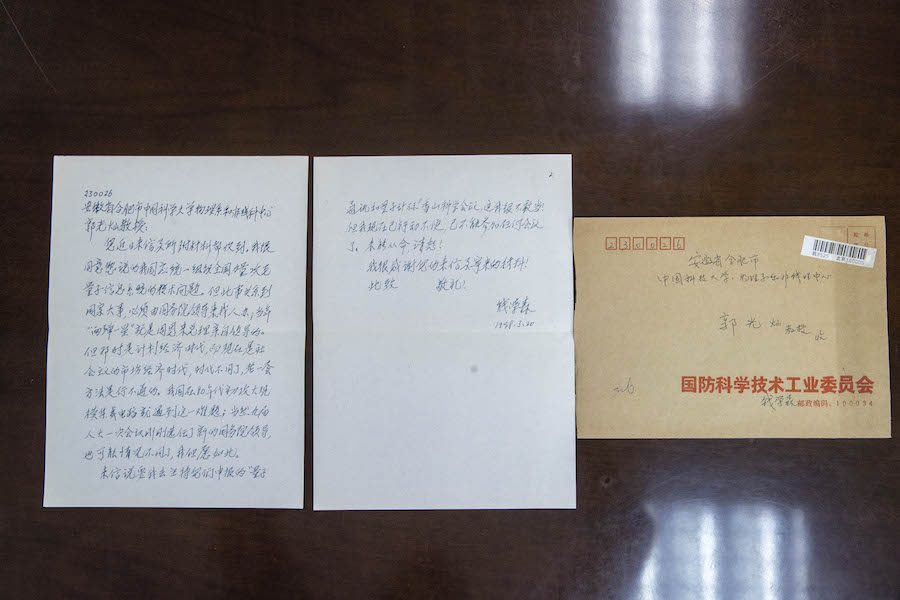 230026
安徽省合肥市中国科学技术大学物理系和非线性中心
郭光灿教授:
您近日来信及所附材料都收到。我很
同意您说的我国应统一组织全国力量攻克
量子信息系统的技术问题。但此事关系到
国家大事,必须由国务院领导来找人去,当年
“两弹一星”就是周恩来总理亲自领导的。
但那时是计划经济时代,而现在是社
会主义的市场经济时代,时代不同了,老一套
方法是行不通的。我国在初攻大规
模集成电路就遇到这一难题;当然九届
人大一次会议刚刚选任了新的国务院领导,
也可能情况不同了,我但愿如此。
来信说要我去主持您们申报的“量子
2
通讯和量子计算”香山科学会议,这我很不敢当!
但我现在已行动不便,已不能参加任何会议
了。未能从命,请恕!
我很感谢您的来信及寄来的材料!
此致 敬礼!
钱学森
1998.3.20
230026
安徽省合肥市
中国科技大学 物理系和非线性中心
郭光灿 教授 收
国防科学技术工业委员会
钱学森 邮政编码:100034